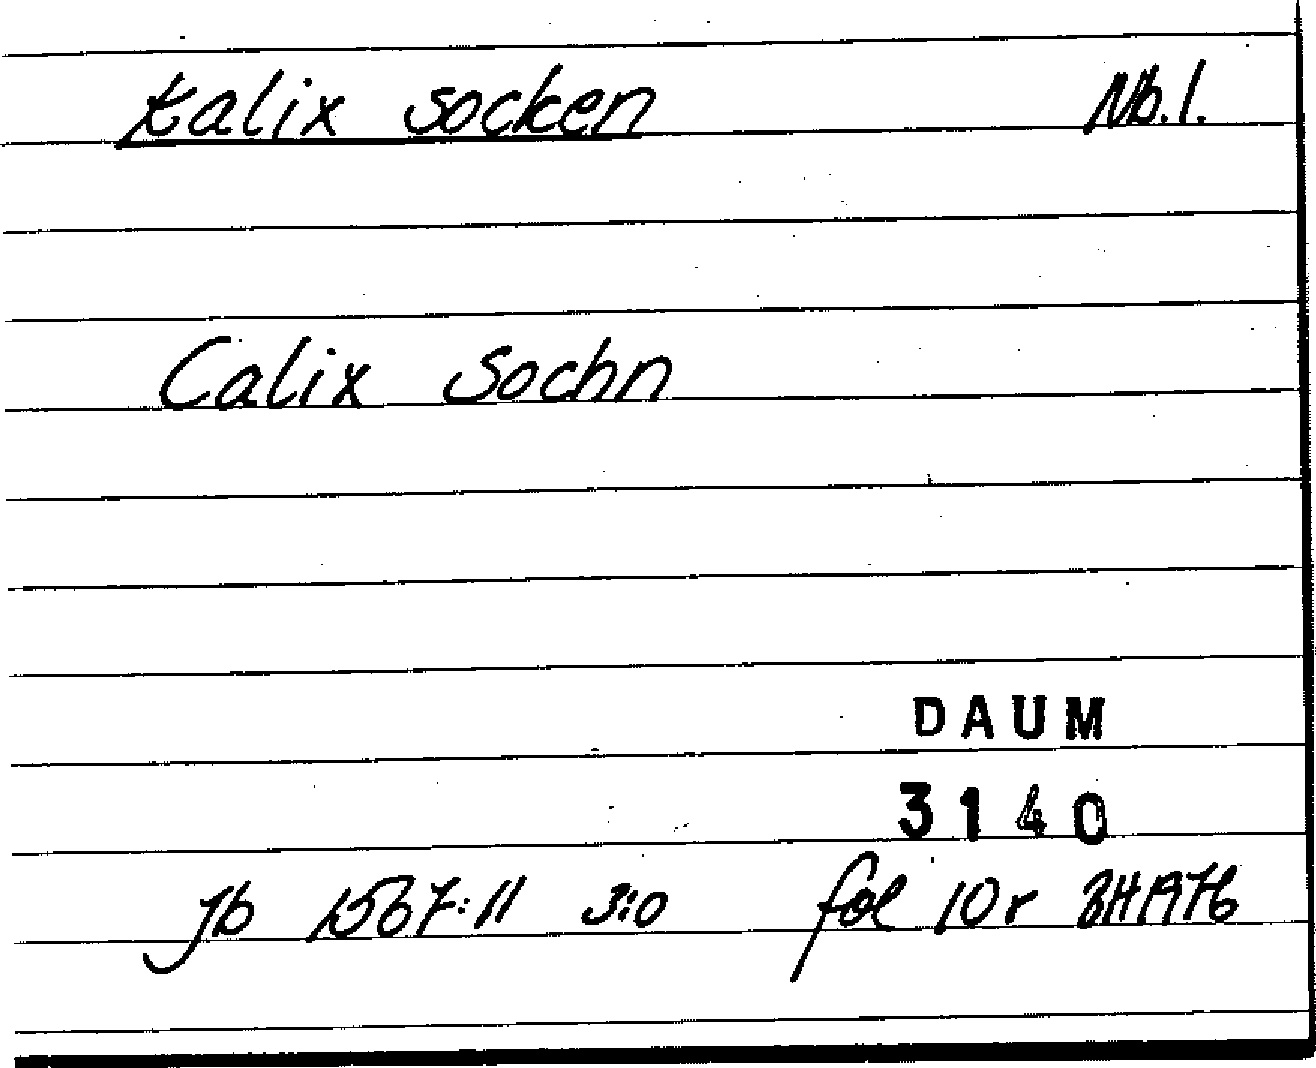 Kalix socken Nb.l.
Calix Sochn
DAUM
3140
jb 1567:11 s:o fol 10r BHA76